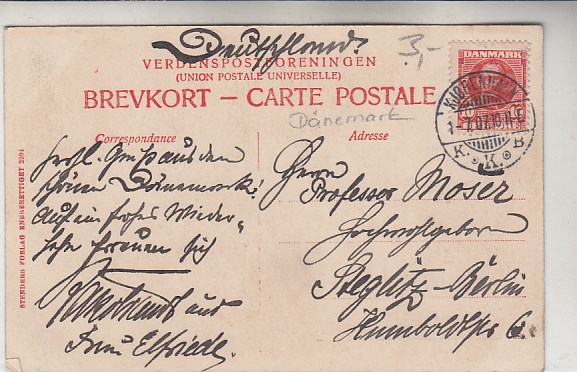 Deutschland.
3,-
VERDENSPOSTFORENINGEN
(UNION POSTALE UNIVERSELLE)
BREVKORT – CARTE POSTALE
Dänemark
DANMARK
10
KJØBENHAVN
K.
K.
B
Correspondance
Adresse
STENDERS FORLAG ENEBERETTIGET 2994
herzl. Gruß aus dem
schönen Dänemark!
Auf ein frohes Wieder-
sehn freuen sich
und
Frau Elfriede.
Herrn
Professor Moser
Hochwohlgeboren
Steglitz-Berlin
Humboldtstr 6.